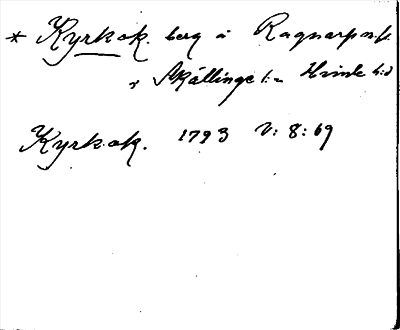 * Kyrkok. berg å Ragnarp n:r
i Skällinge s:n Himle h:d
Kyrkok. 1793 V: 8: 69